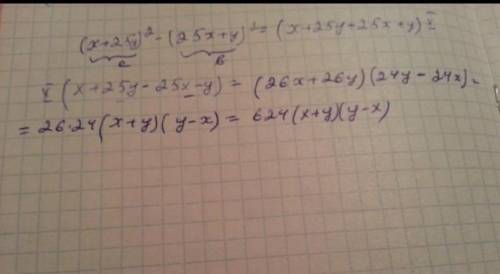 (x+25y)²-(25x+y)²=(x+25y+25x+y)x
a b
x(x+25y-25x-y)=(26x+26y)(24y-24x)=
=26·24(x+y)(y-x)=624(x+y)(y-x)